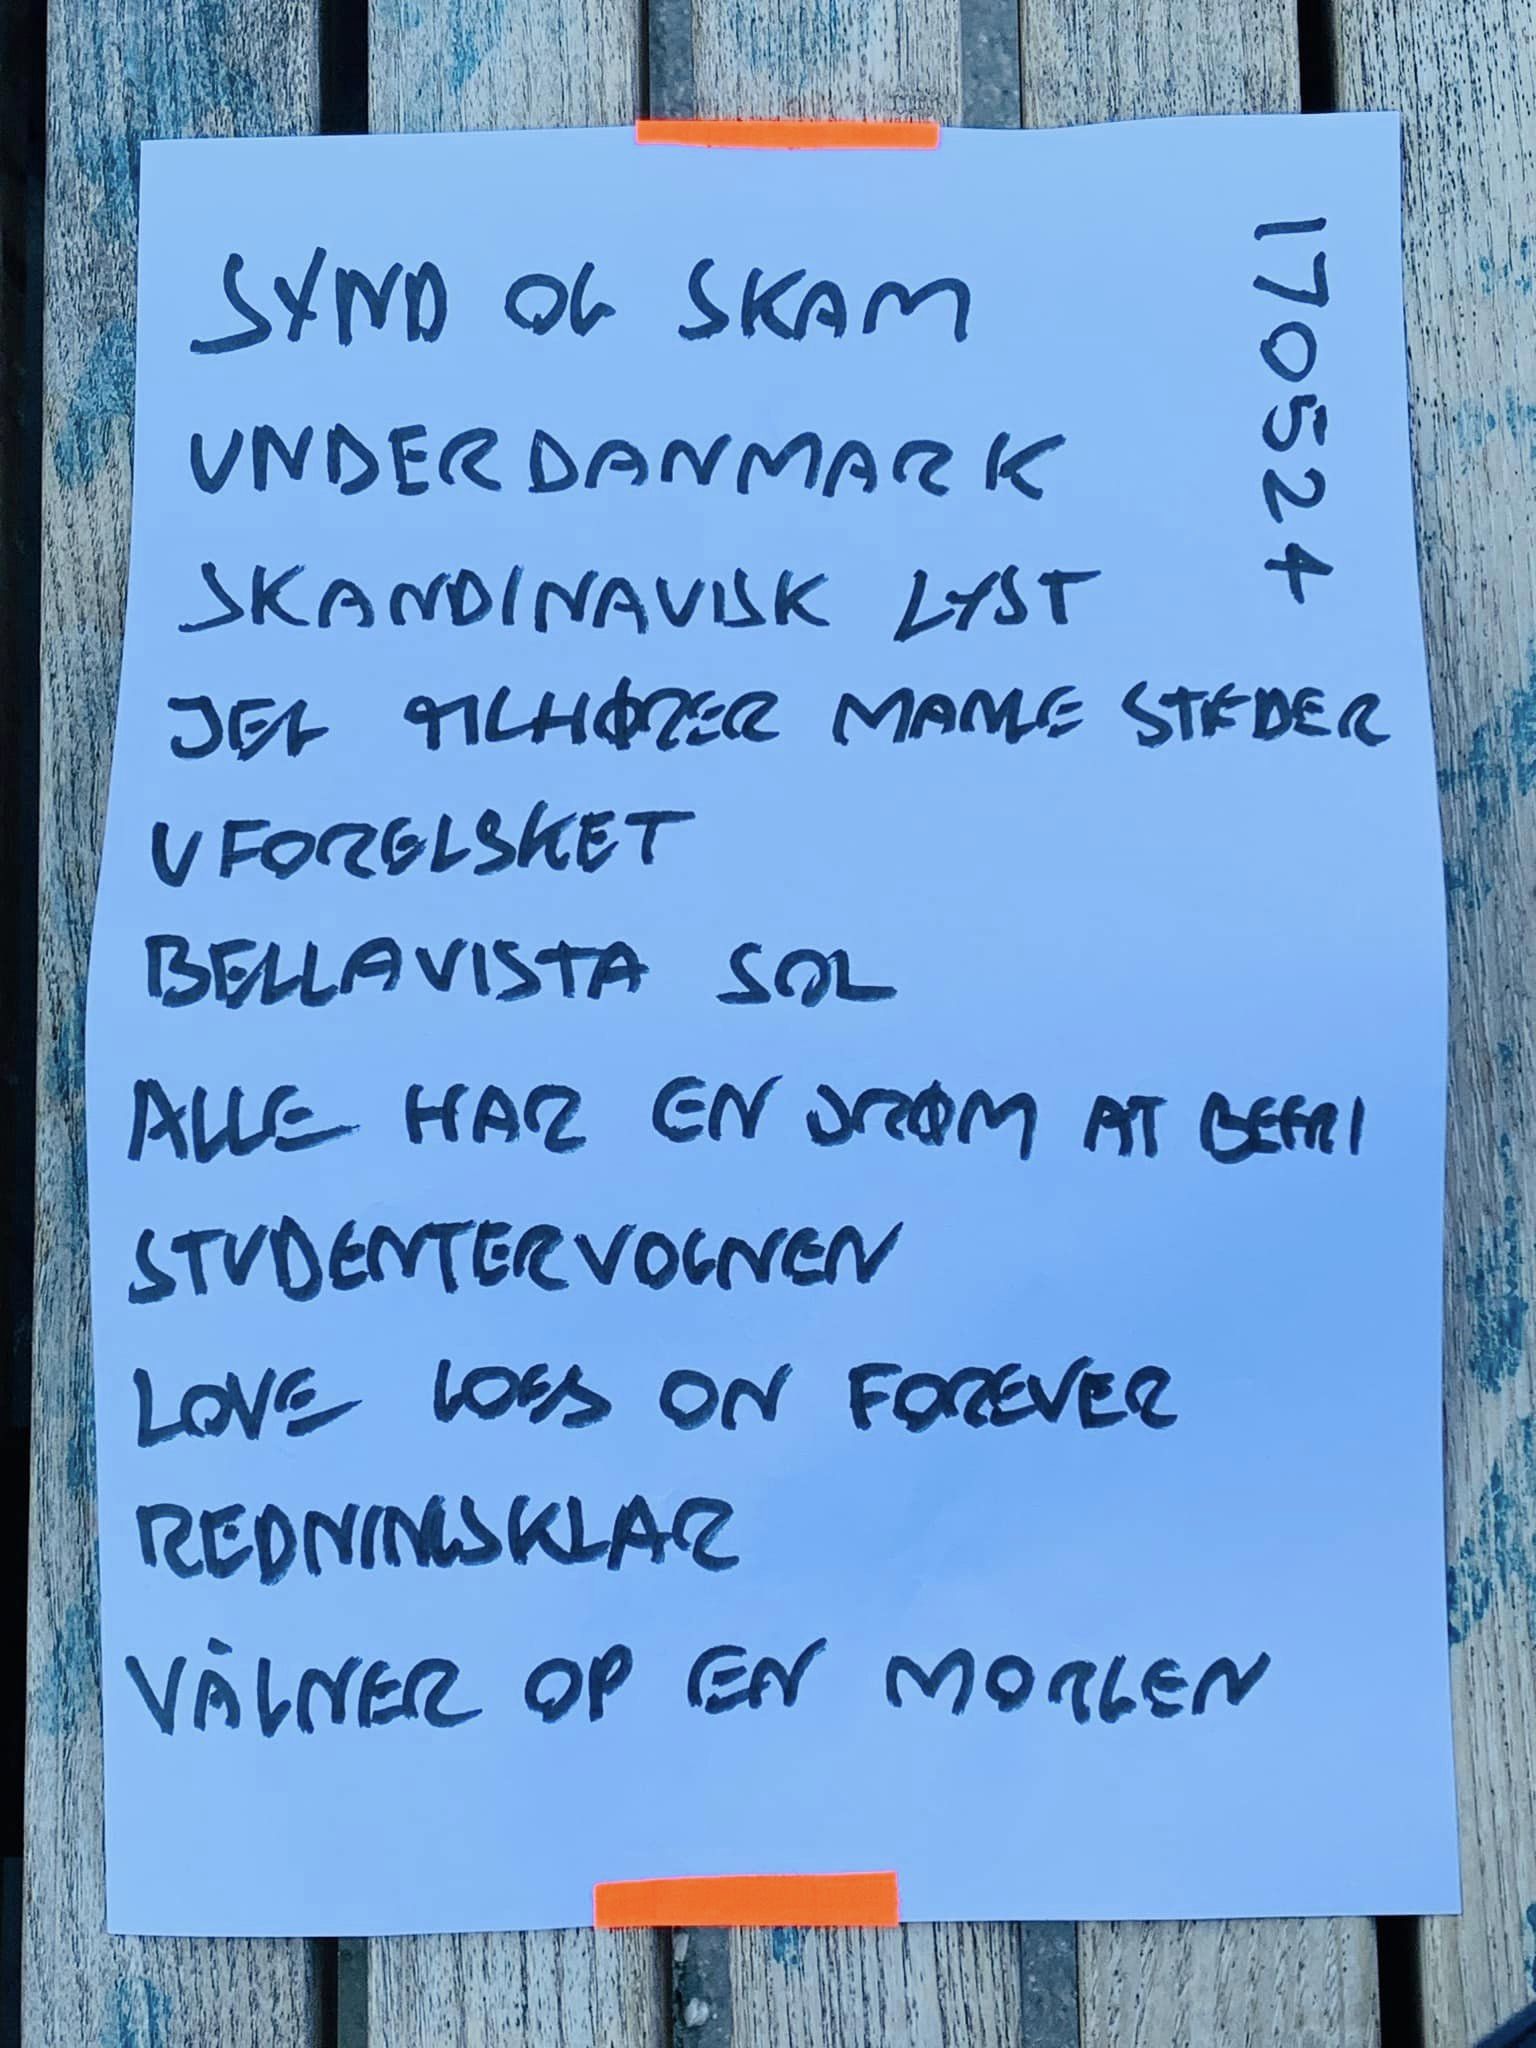 SYND OG SKAM
170524
UNDERDANMARK
SKANDINAVISK LYST
JEG TILHØRER MANGE STEDER
UFORELSKET
BELLAVISTA SOL
ALLE HAR EN DRØM AT BEFRI
STUDENTERVOGNEN
LOVE GOES ON FOREVER
REDNINGSKLAR
VÅGNER OP EN MORGEN